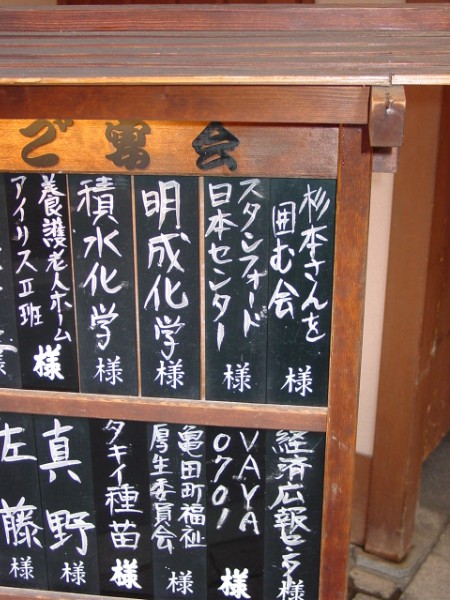 ご宴会
杉本さんを
囲む会
様
スタンフォード
日本センター
様
明成化学
様
積水化学
様
養護老人ホーム
アイリスⅡ班
様
経済広報センター
様
VAYA
0701
様
亀田町福祉
厚生委員会
様
タキイ種苗
様
真野
様
佐藤
様